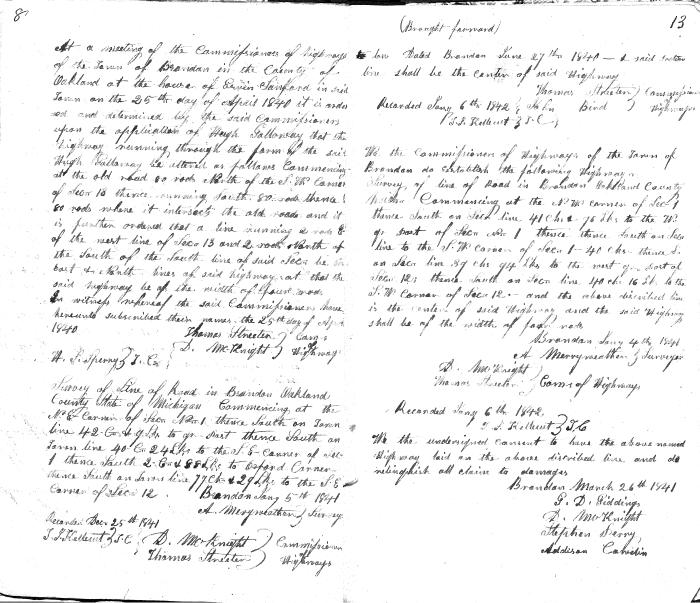 8
At a meeting of the Commissioners of Highways
of the Town of Brandon in the County of
Oakland at the house of Ervin Sanford in said
Town on the 25th day of April 1840 it is order
ed and determined by the said Commissioners
upon the application of Hugh Galloway that the
Highway running through the farm of the said
Hugh Galloway be altered as follows Commencing
at the old road 80 rods North of the S. W. Corner
of Secn 13 thence running South 80 rods thence
80 rods where it intersects the old roads and it
is further ordered that a line running 2 rods E
of the west line of Secn 13 and 2 rods North of
the South of the South line of said Secn be the
East & North lines of said highway at that the
said highway be of the width of four rods
In witness whereof the said Commissioners have
hereunto subscribed their names the 25th day of April
1840
Thomas Streeter } Coms
D. McKnight } Highway
H. S. Sperry } T. C.
Survey of Line of Road in Brandon Oakland
County State of Michigan Commencing at the
N. E. Corner of Secn No. 1 thence South on Town
line 42 Co & 9 Lks to qr post thence South on
Town line 40 Co 24 Lks to the S. E Corner of Sec
1 thence South 2 Co & 88 Lks to Oxford Corner
thence South on Town line 77 Ch & 29 Lks to the S. E
Corner of Secn 12. Brandon Jany 5th 1841
A. Merryweather } Survey
Recorded Decr 25th 1841
} T. C. { D. McKnight } Commissioners
Thomas Streeter } Highways
13
(Brought forward)
Dated Brandon June 27th 1840 — & said
line shall be the center of said Highway
Thomas Streeter } Commissioners
Recorded Jany 6th 1842 } John Bird } Highways
} T. C.
We the Commissioner of Highways of the Town of
Brandon do Establish the following Highway
Survey of line of Road in Brandon Oakland County
Commencing at the N. W. Corner of Sec 1
thence South on Secn line 41 Chs & 76 Lks to the W.
qr post of Secn No. 1 thence South on Secn
line to the S. W. Corner of Secn 1 - 40 chs thence S.
on Secn line 39 chs 94 Lks to the west qr post of
Secn 12th thence South on Secn line 40 chs 16 Lks to the
S. W. Corner of Secn 12 - and the above discribed line
is the center of said Highway and the said Highway
shall be of the width of four rods
Brandon Jany 4th 1841
A Merryweather } Surveyor
D. McKnight }
Thomas Streeter } Coms of Highways
Recorded Jany 6th 1842.
} T. C.
We the undersigned consent to have the above named
Highway laid on the above discribed line and do
relinquish all claim to damages
Brandon March 26th 1841
G. D. Giddings
D. McKnight
Stephen Perry
Addison